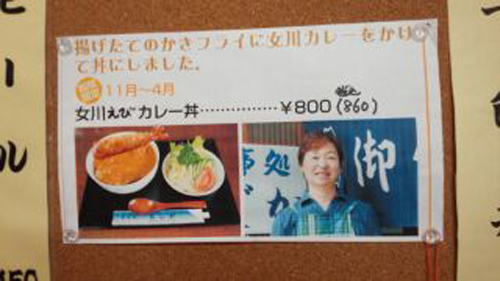 揚げたてのかきフライに女川カレーをかけ
て丼にしました。
11月〜4月
女川えびカレー丼……………¥800(860)
税込
ビール
御
処